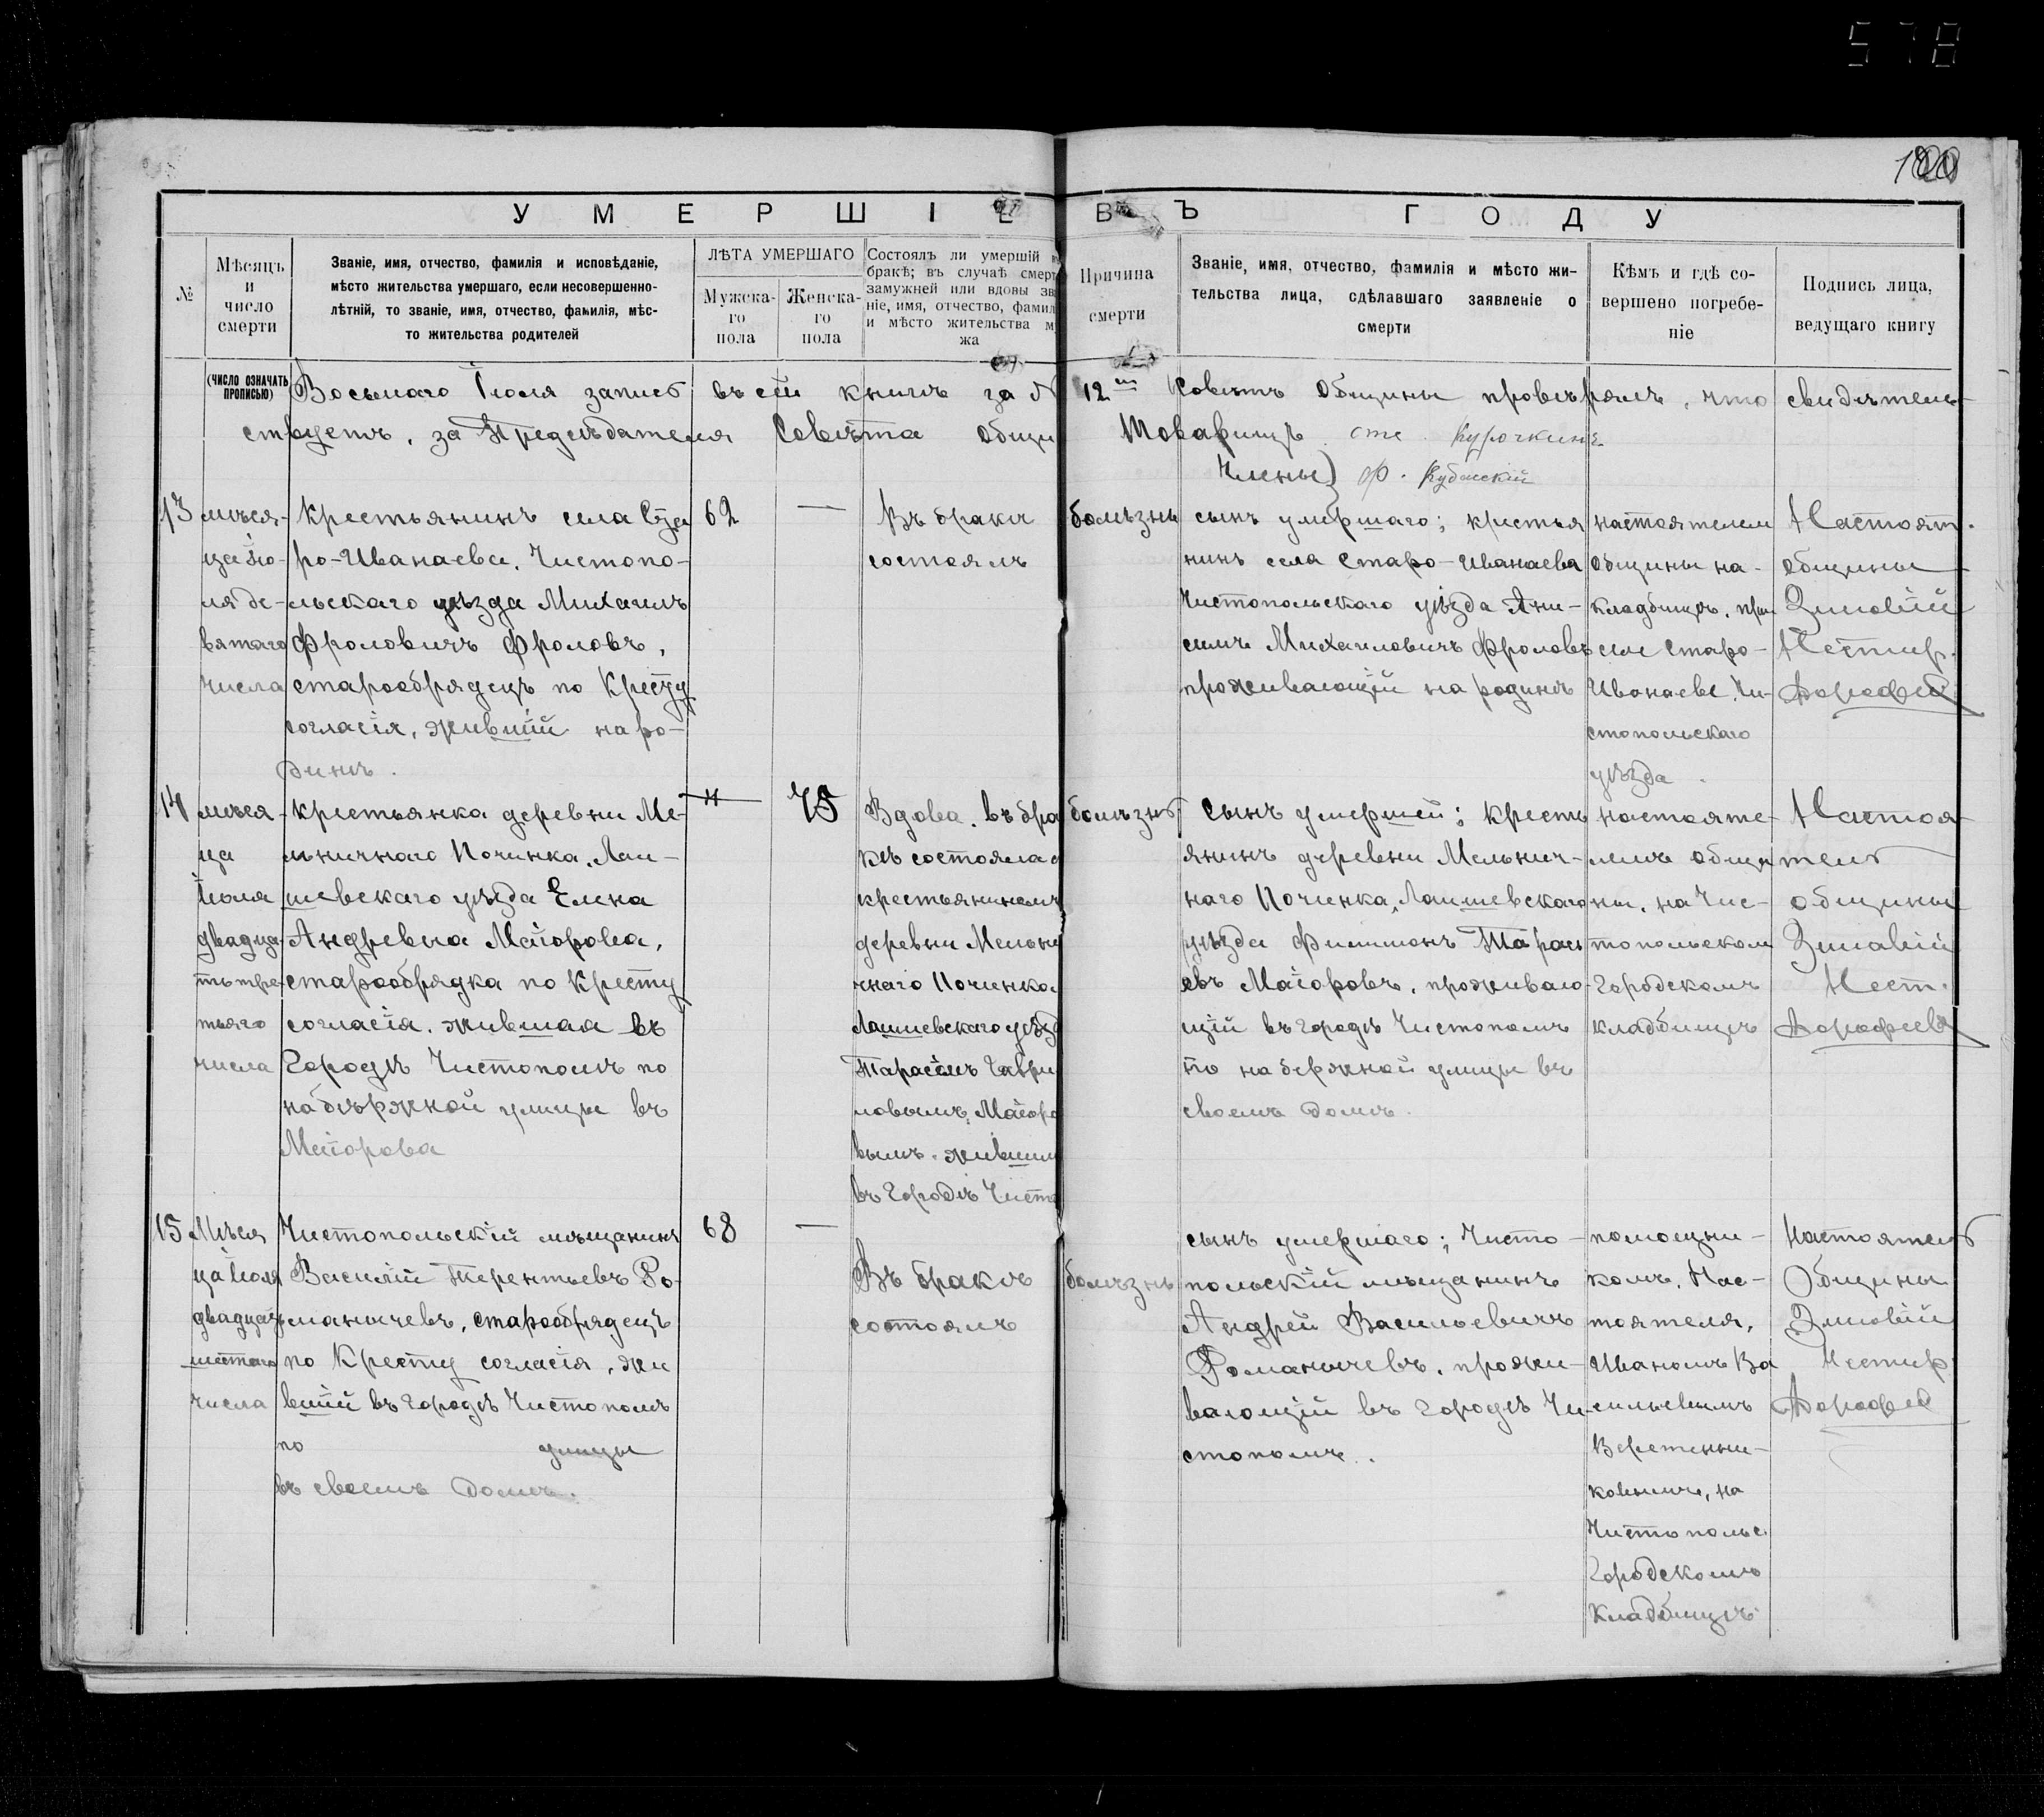 578
100
УМЕРШІЕ ВЪ ГОДУ
№
Мѣсяцъ
и
число
смерти
Званіе, имя, отчество, фамилія и исповѣданіе,
мѣсто жительства умершаго, если несовершенно-
лѣтній, то званіе, имя, отчество, фамилія, мѣс-
то жительства родителей
ЛѢТА УМЕРШАГО
Мужска-
го
пола
Женска-
го
пола
Состоялъ ли умершій в
бракѣ; въ случаѣ смерт
замужней или вдовы зв
ніе, имя, отчество, фамил
и мѣсто жительства м
жа
Причина
смерти
Званіе, имя, отчество, фамилія и мѣсто жи-
тельства лица, сдѣлавшаго заявленіе о
смерти
Кѣмъ и гдѣ со-
вершено погребе-
ніе
Подпись лица,
ведущаго книгу
(ЧИСЛО ОЗНАЧАТЬ
ПРОПИСЬЮ)
Восьмого Іюля запись въ сей книгѣ за № 12 Совѣтъ Общины провѣрялъ, что свидѣтель-
ствуетъ, за Предсѣдателя Совѣта Общи Товарищъ Курочкинъ
Члены)
13
мѣся-
ца ію-
ля де-
вятаго
числа
Крестьянинъ села Ста
ро-Иванаева, Чистопо-
льскаго уѣзда Михаилъ
Фроловичъ Фроловъ,
старообрядецъ по Кресту
согласія, жившій на ро-
динѣ.
62
—
Въ бракѣ
состоялъ
болѣзнь
сынъ умершаго; крестья
нинъ села Старо-Иванаева
Чистопольскаго уѣзда Ани-
симъ Михаиловичъ Фроловъ
проживающій на родинѣ
настоятелем
Общины на-
кладбищѣ, при
селѣ Старо-
Иванаеве, Чи-
стопольскаго
уѣзда.
Настоят.
общины
Зиновій
Нестер.
Дорофеев
14
мѣся-
ца
Іюля
двадца-
ть тре-
тьяго
числа
Крестьянка деревни Ме-
льничнаго Починка, Лаи-
шевскаго уѣзда Елена
Андревна Маіорова,
старообрядка по Кресту
согласія, жившая въ
Городѣ Чистополѣ по
набѣряжной улицы въ
Маіорова
75
Вдова, въ бра
кѣ состояла с
крестьяниномъ
деревни Мельни
чнаго Починка
Лаишевскаго уѣзд
Тарасомъ Гаври
ловымъ, Маіоро
вымъ, жившим
въ Городѣ Чисто
болѣзнь
Сынъ умершей; кресть
янинъ деревни Мельнич-
наго Починка, Лаишевскаго
уѣзда Филимонъ Тарась
евъ Маіоровъ, проживаю-
щій въ городѣ Чистополѣ
по на бережной улицы въ
своемъ домѣ.
настояте-
лемъ общи
ны, на Чис-
топольском
Городскомъ
кладбищѣ
Настоя-
тель
общины
Зиновій
Нест.
Дорофеевъ
15
Мѣся
ца Іюля
двадцать
шестаго
числа
Чистопольскій мѣщанинъ
Василій Терентьевъ Ро-
манычевъ, старообрядецъ
по Кресту согласія, жи
вшій въ Городѣ Чистополѣ
по улицы
въ своемъ домѣ.
68
—
Въ бракѣ
состоялъ
болѣзнь
сынъ умершаго; Чисто-
польскій мѣщанинъ
Андрей Васильевичъ
Романычевъ, прожи-
вающій въ Городѣ Чи-
стополѣ.
помощни-
комъ, Нас-
тоятеля,
Иваномъ Ва
сильевымъ
Веретенни-
ковымъ, на
Чистопольс.
Городскомъ
Кладбищѣ
Настоятель
Общины
Зиновій
Нестер
Дорофеев